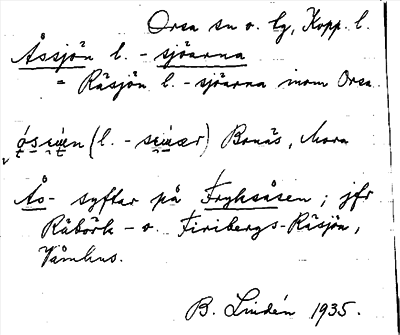 Orsa sn o. lg, Kopp. l.
Åssjön l. -sjöarna
= Räsjön l. -sjöarna inom Orsa
(l. - ) Bonäs, Mora
Ås- syftar på Fryksåsen; jfr
Räbörk- o. Firibergs-Räsjön,
Våmhus.
B. Lindén 1935.